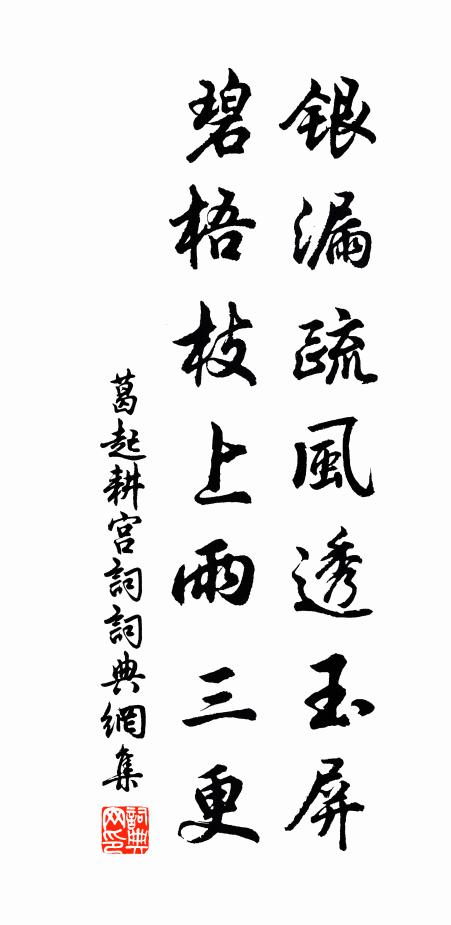 銀漏疏風透玉屏
碧梧枝上雨三更
葛起耕宮詞詞典網集
詞典网印